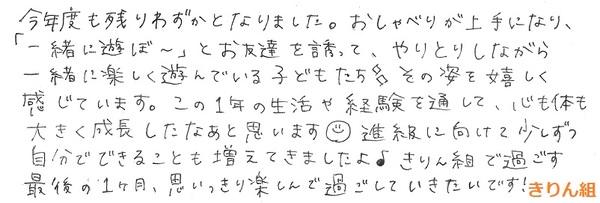 今年度も残りわずかとなりました。おしゃべりが上手になり、
「一緒に遊ぼ〜」とお友達を誘って、やりとりしながら
一緒に楽しく遊んでいる子どもたち♬その姿を嬉しく
感じています。この1年の生活や経験を通して、心も体も
大きく成長したなあと思います☺進級に向けて少しずつ
自分でできることも増えてきましたよ♪きりん組で過ごす
最後の1ヶ月、思いっきり楽しんで過ごしていきたいです!きりん組